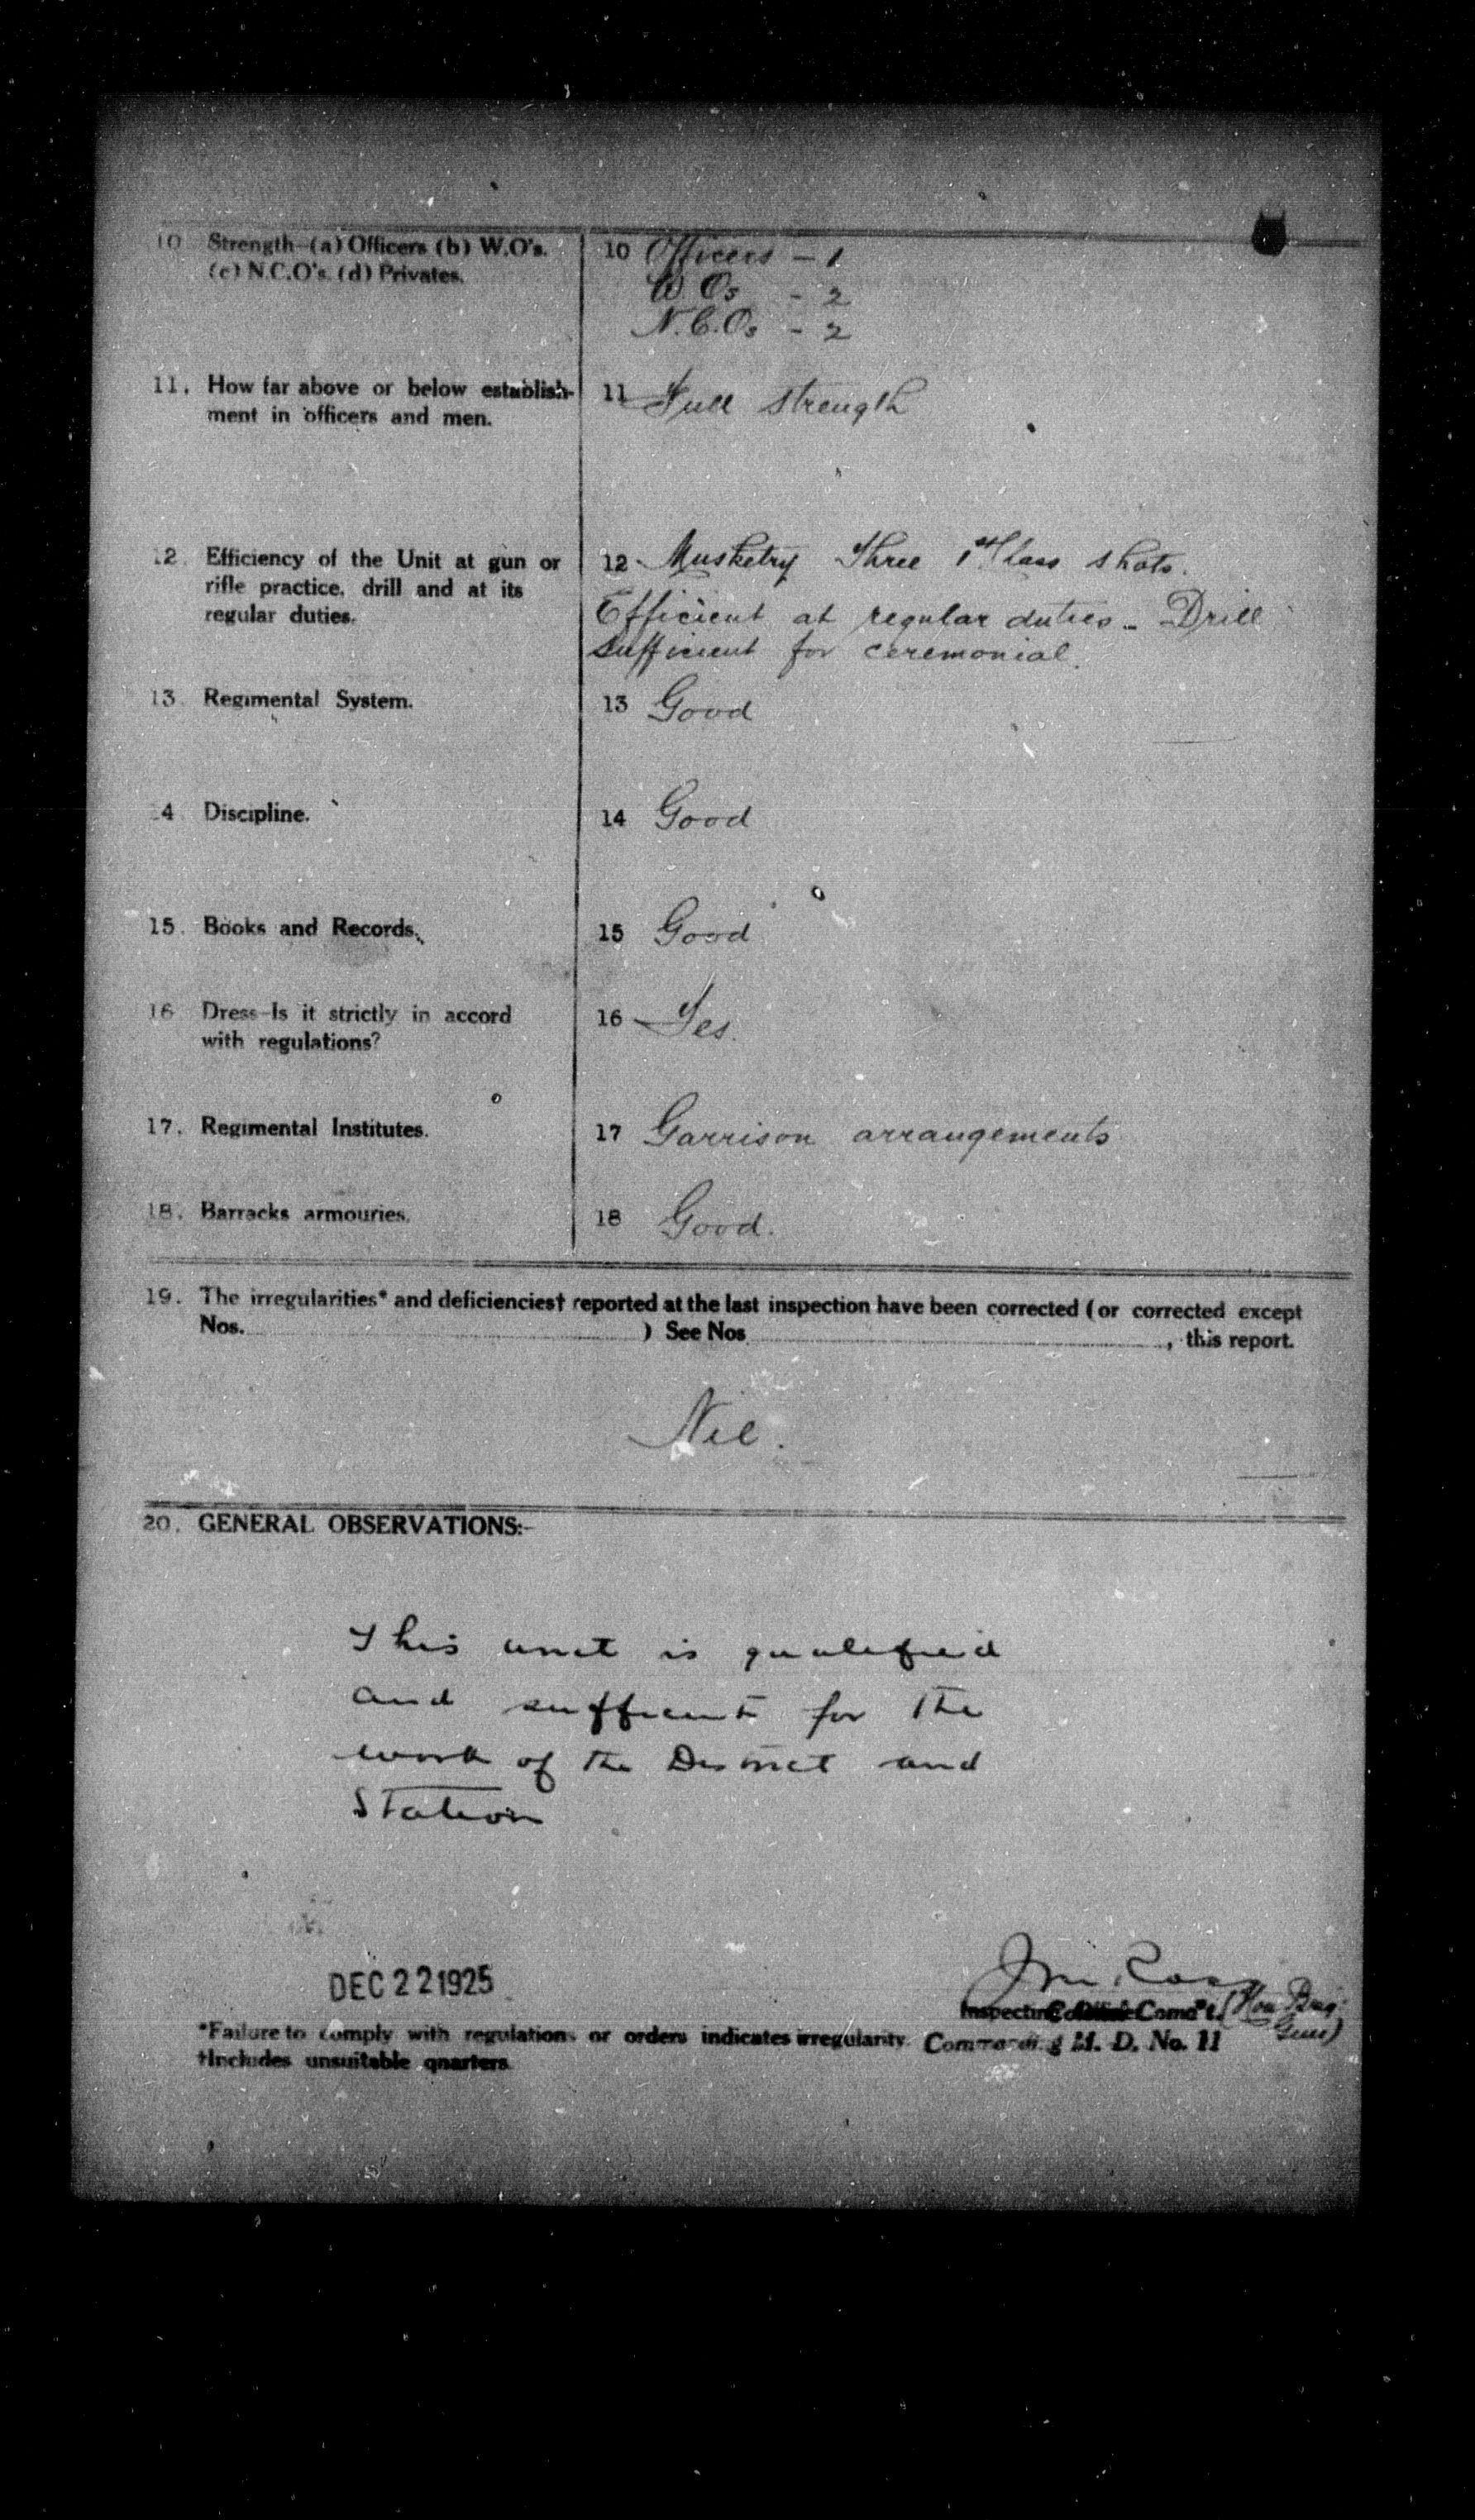 10 Strength-(a) Officers (b) W.O's. 10 Officers - 1
(c) N.C.O's. (d) Privates. W.Os - 2
N.C.Os - 2
11. How far above or below establish- 11 Full strength
ment in officers and men.
12 Efficiency of the Unit at gun or 12 Musketry Three 1st Class shots.
rifle practice, drill and at its Efficient at regular duties - Drill
regular duties. sufficient for ceremonial.
13 Regimental System. 13 Good
14 Discipline. 14 Good
15. Books and Records. 15 Good
16 Dress-Is it strictly in accord 16 Yes.
with regulations?
17. Regimental Institutes. 17 Garrison arrangements
18. Barracks armouries. 18 Good.
19. The irregularities* and deficiencies† reported at the last inspection have been corrected (or corrected except
Nos. ) See Nos , this report.
Nil.
20. GENERAL OBSERVATIONS:-
This unit is qualified
and sufficient for the
work of the District and
Station
DEC 22 1925
J M Ross
Inspecting Comd't. (Hon Brig.
Genl)
*Failure to comply with regulations or orders indicates irregularity. Commanding M. D. No. 11
†Includes unsuitable quarters.